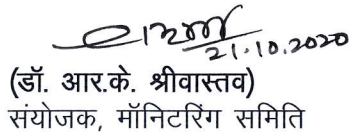 21.10.2020
(डॉ. आर.के. श्रीवास्तव)
संयोजक, मॉनिटरिंग समिति